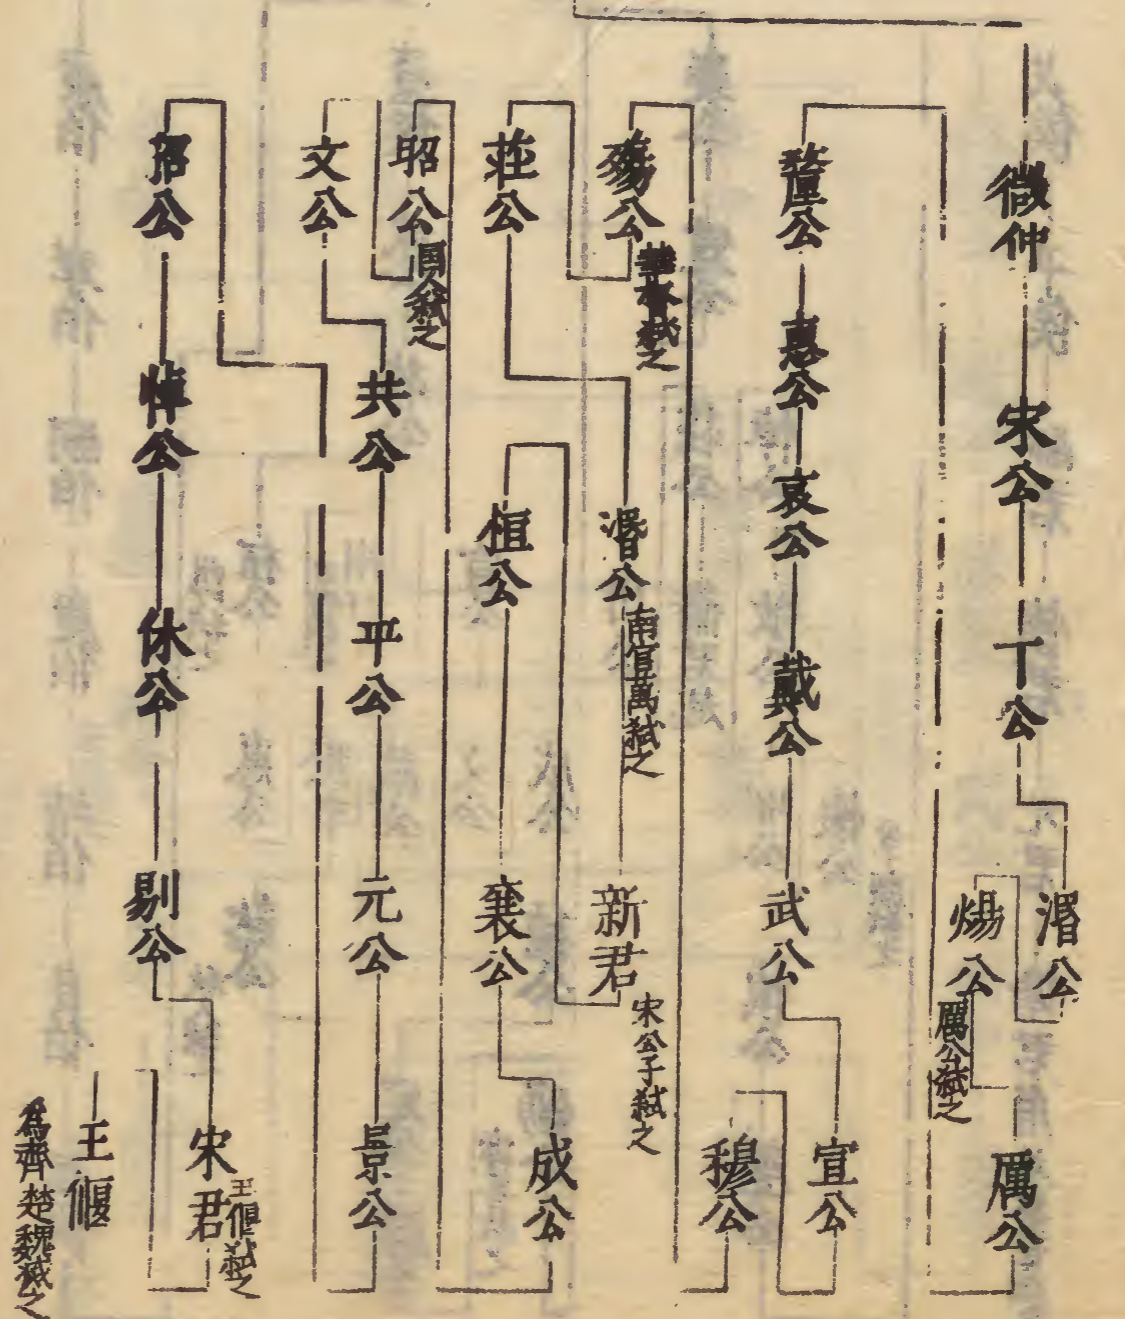 微仲
宋公
丁公
湣公
煬公
厲公弑之
厲公
釐公
惠公
哀公
戴公
武公
宣公
穆公
殤公
華督弑之
莊公
湣公
南宫萬弑之
新君
宋公子弑之
桓公
襄公
成公
昭公
文公
共公
平公
元公
景公
昭公
悼公
休公
剔公
宋君
王偃弑之
王偃
為齊楚魏滅之